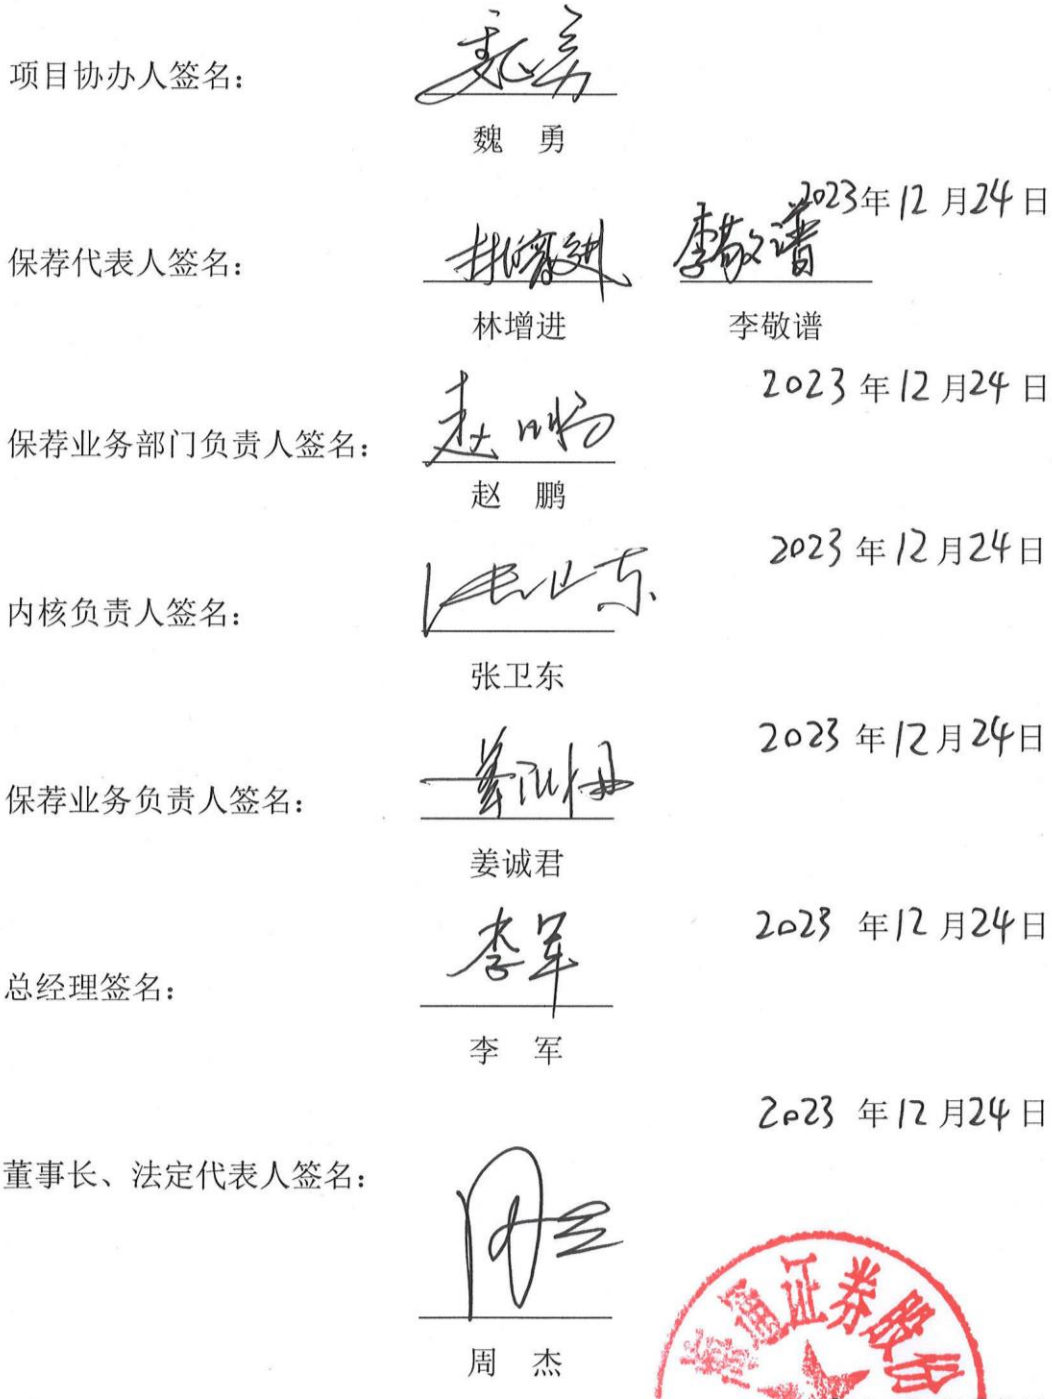 魏勇
项目协办人签名：
魏 勇
2023年12月24日
林增进 李敬谱
保荐代表人签名：
林增进 李敬谱
2023年12月24日
赵鹏
保荐业务部门负责人签名：
赵 鹏
2023年12月24日
张卫东
内核负责人签名：
张卫东
2023年12月24日
姜诚君
保荐业务负责人签名：
姜诚君
2023年12月24日
李军
总经理签名：
李 军
2023年12月24日
董事长、法定代表人签名：
周杰
周 杰
海通证券股份